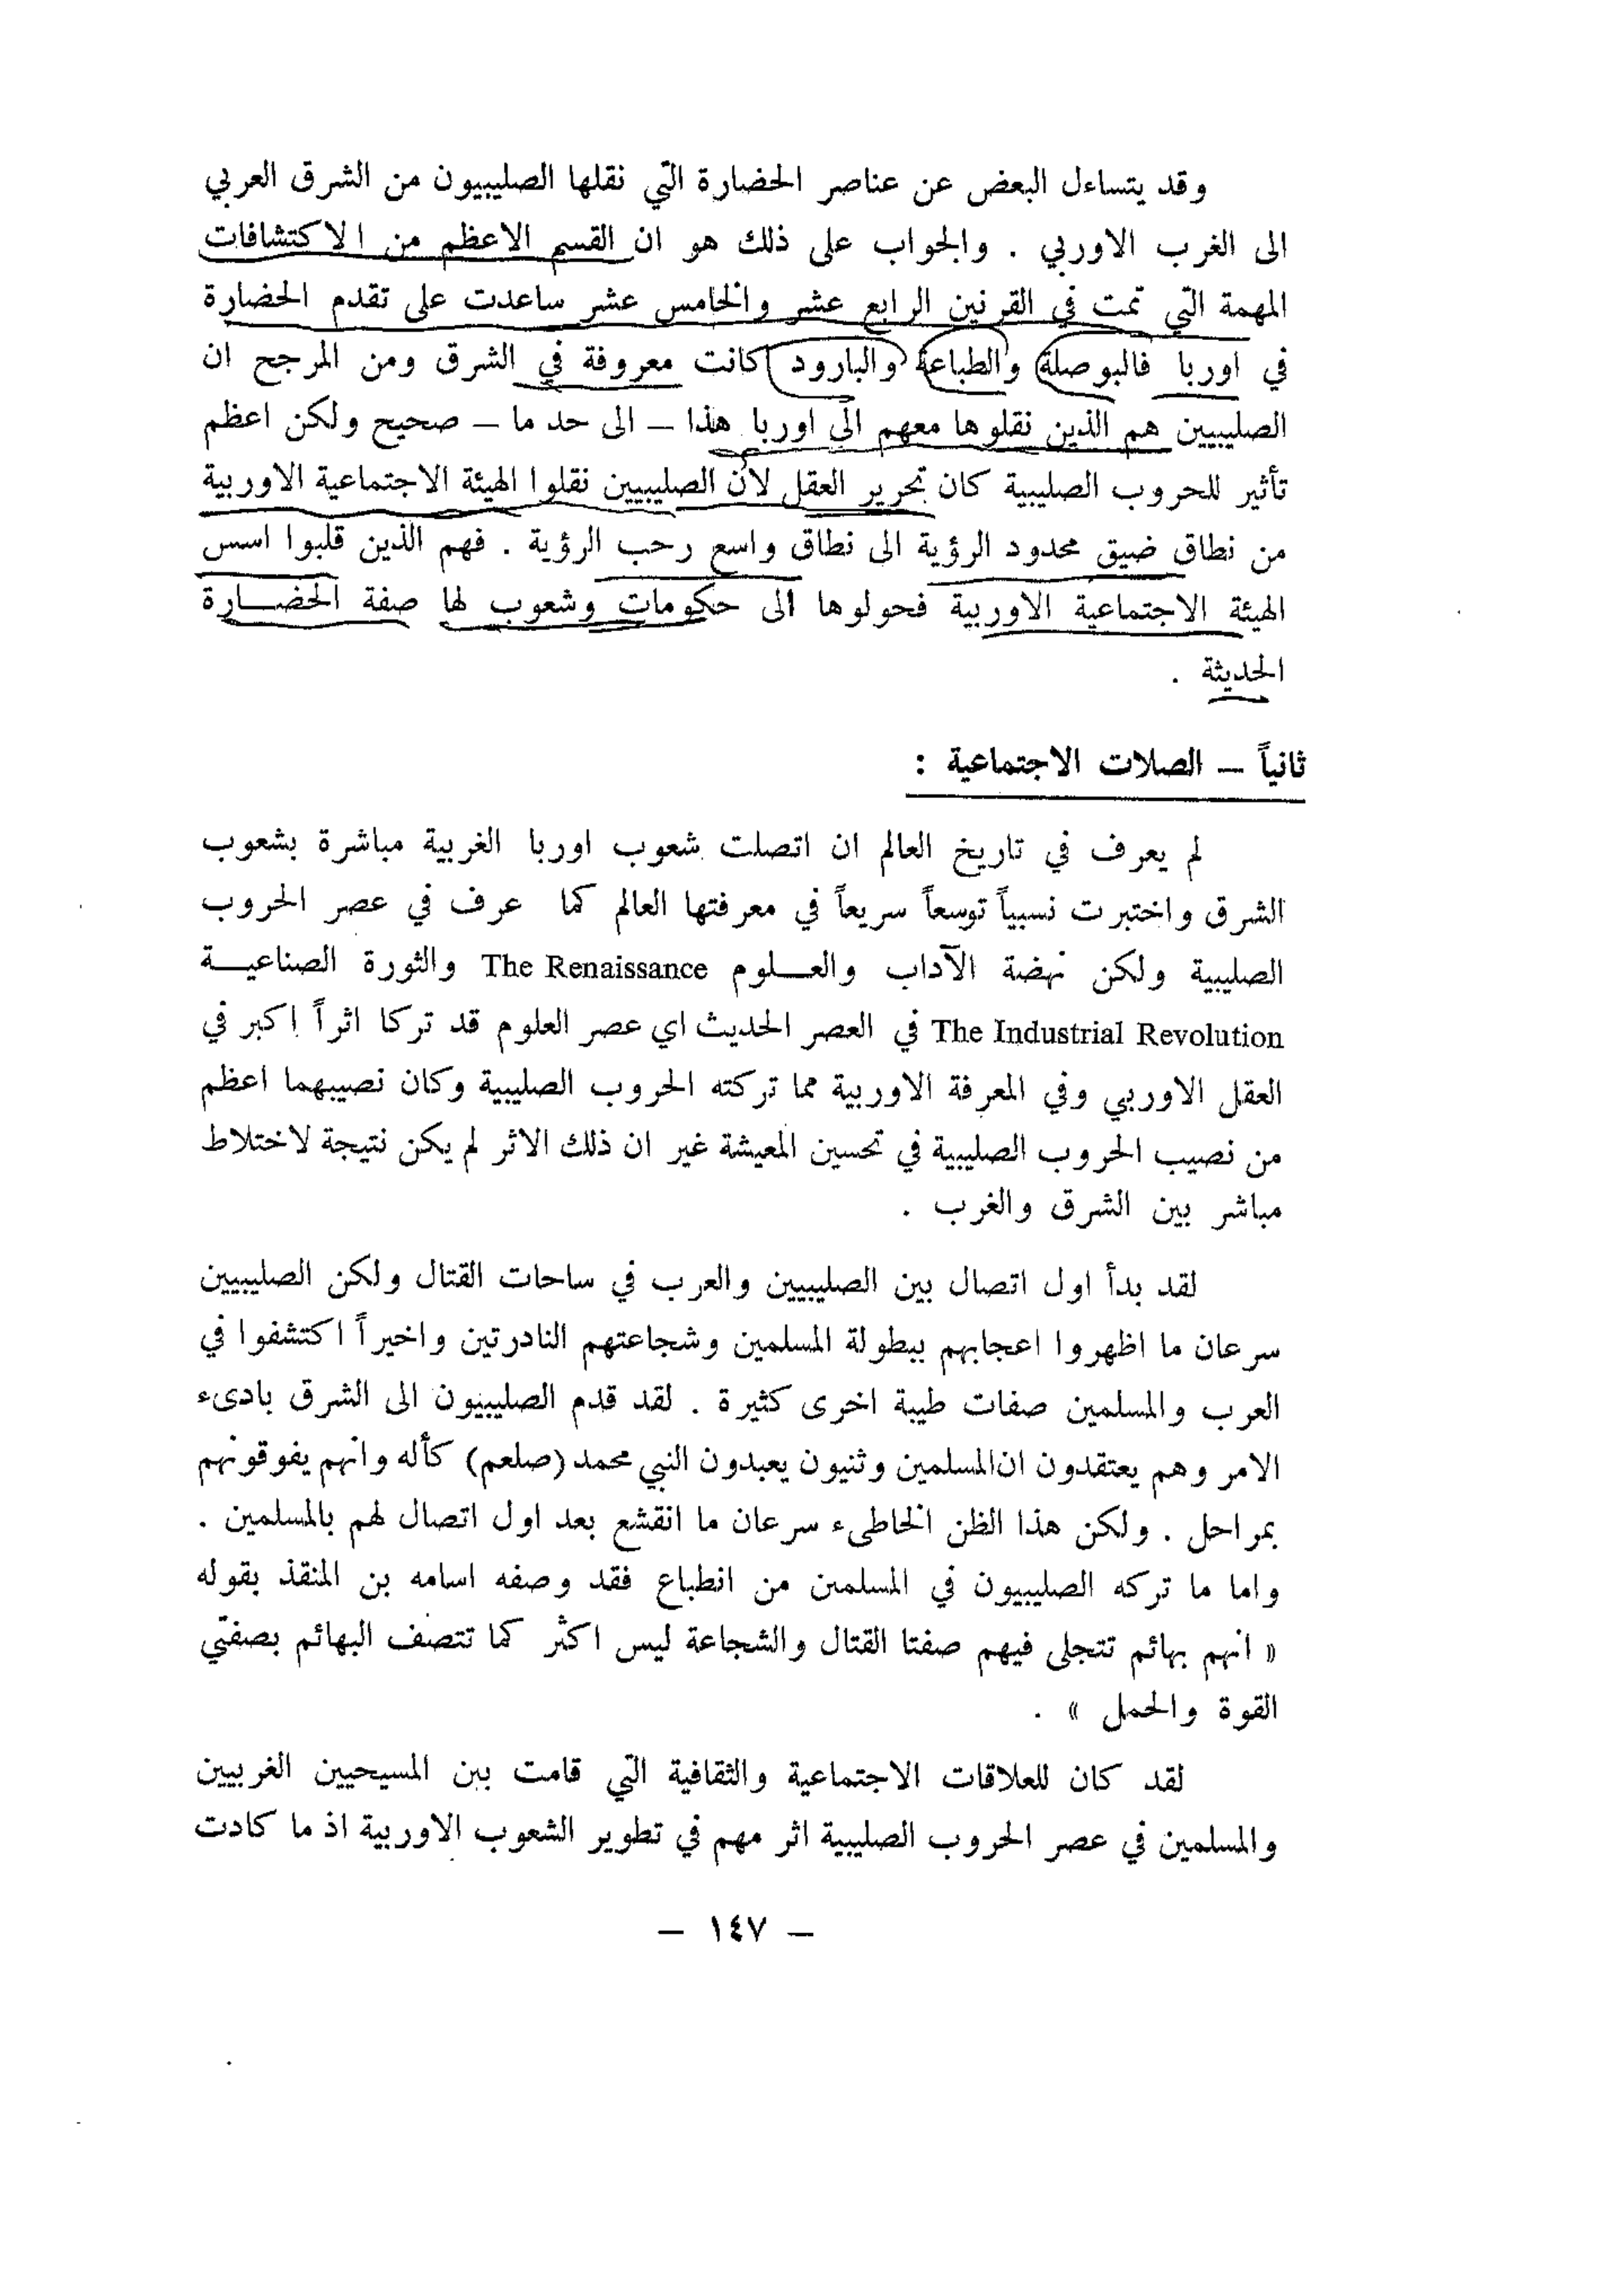 وقد يتساءل البعض عن عناصر الحضارة التي نقلها الصليبيون من الشرق العربي
الى الغرب الاوربي . والجواب على ذلك هو ان القسم الاعظم من الاكتشافات
المهمة التي تمت في القرنين الرابع عشر والخامس عشر ساعدت على تقدم الحضارة
في اوربا فالبوصلة والطباعة والبارود كانت معروفة في الشرق ومن المرجح ان
الصليبيين هم الذين نقلوها معهم الى اوربا هذا – الى حد ما – صحيح ولكن اعظم
تأثير للحروب الصليبية كان تحرير العقل لأن الصليبيين نقلوا الهيئة الاجتماعية الاوربية
من نطاق ضيق محدود الرؤية الى نطاق واسع رحب الرؤية . فهم الذين قلبوا اسس
الهيئة الاجتماعية الاوربية فحولوها الى حكومات وشعوب لها صفة الحضارة
الحديثة .
ثانياً – الصلات الاجتماعية :
لم يعرف في تاريخ العالم ان اتصلت شعوب اوربا الغربية مباشرة بشعوب
الشرق واختبرت نسبياً توسعاً سريعاً في معرفتها العالم كما عرف في عصر الحروب
الصليبية ولكن نهضة الآداب والعلوم The Renaissance والثورة الصناعية
The Industrial Revolution في العصر الحديث اي عصر العلوم قد تركا اثراً اكبر في
العقل الاوربي وفي المعرفة الاوربية مما تركته الحروب الصليبية وكان نصيبهما اعظم
من نصيب الحروب الصليبية في تحسين المعيشة غير ان ذلك الاثر لم يكن نتيجة لاختلاط
مباشر بين الشرق والغرب .
لقد بدأ اول اتصال بين الصليبيين والعرب في ساحات القتال ولكن الصليبيين
سرعان ما اظهروا اعجابهم ببطولة المسلمين وشجاعتهم النادرتين واخيراً اكتشفوا في
العرب والمسلمين صفات طيبة اخرى كثيرة . لقد قدم الصليبيون الى الشرق بادىء
الامر وهم يعتقدون ان المسلمين وثنيون يعبدون النبي محمد (صلعم) كأله وانهم يفوقونهم
بمراحل . ولكن هذا الظن الخاطىء سرعان ما انقشع بعد اول اتصال لهم بالمسلمين .
واما ما تركه الصليبيون في المسلمين من انطباع فقد وصفه اسامه بن المنقذ بقوله
« انهم بهائم تتجلى فيهم صفتا القتال والشجاعة ليس اكثر كما تتصف البهائم بصفتي
القوة والحمل » .
لقد كان للعلاقات الاجتماعية والثقافية التي قامت بين المسيحيين الغربيين
والمسلمين في عصر الحروب الصليبية اثر مهم في تطوير الشعوب الاوربية اذ ما كادت
– ١٤٧ –